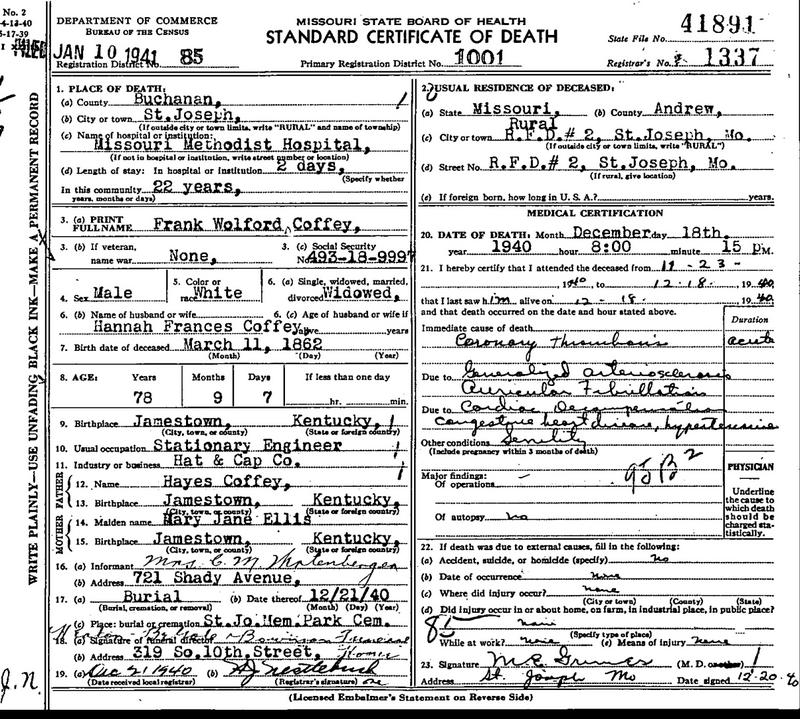 No. 2
4-13-40
5-17-39
DEPARTMENT OF COMMERCE
BUREAU OF THE CENSUS
MISSOURI STATE BOARD OF HEALTH
STANDARD CERTIFICATE OF DEATH
State File No. 41891
FILED JAN 10 1941 85
Registration District No.
Primary Registration District No. 1001
Registrar's No. 1337
WRITE PLAINLY—USE UNFADING BLACK INK—MAKE A PERMANENT RECORD
1. PLACE OF DEATH:
(a) County Buchanan,
(b) City or town St.Joseph,
(If outside city or town limits, write "RURAL" and name of township)
(c) Name of hospital or institution:
Missouri Methodist Hospital,
(If not in hospital or institution, write street number or location)
(d) Length of stay: In hospital or institution 2 days,
(Specify whether
In this community 22 years,
years, months or days)
3. (a) PRINT FULL NAME Frank Wolford Coffey,
3. (b) If veteran, name war None,
3. (c) Social Security No. 493-18-9997
4. Sex Male
5. Color or race White
6. (a) Single, widowed, married, divorced Widowed,
6. (b) Name of husband or wife
6. (c) Age of husband or wife if
Hannah Frances Coffey, alive years
7. Birth date of deceased March 11, 1862
(Month) (Day) (Year)
8. AGE: Years Months Days If less than one day
78 9 7 hr. min.
9. Birthplace Jamestown, Kentucky,
(City, town, or county) (State or foreign country)
10. Usual occupation Stationary Engineer
11. Industry or business Hat & Cap Co.
FATHER
12. Name Hayes Coffey,
13. Birthplace Jamestown, Kentucky,
(City, town, or county) (State or foreign country)
MOTHER
14. Maiden name Mary Jane Ellis
15. Birthplace Jamestown, Kentucky,
(City, town, or county) (State or foreign country)
16. (a) Informant Mrs. C. M.
(b) Address 721 Shady Avenue,
17. (a) Burial (b) Date thereof 12/21/40
(Burial, cremation, or removal) (Month) (Day) (Year)
(c) Place: burial or cremation St.Jo.Mem.Park Cem.
18. (a) Signature of funeral director Bowman Funeral
(b) Address 319 So.10th.Street, Home
19. (a) Dec 21 1940 (b)
(Date received local registrar) (Registrar's signature)
J.N.
2. USUAL RESIDENCE OF DECEASED:
(a) State Missouri, (b) County Andrew,
Rural
(c) City or town R.F.D.# 2, St.Joseph, Mo.
(If outside city or town limits, write "RURAL")
(d) Street No. R.F.D.# 2, St.Joseph, Mo.
(If rural, give location)
(e) If foreign born, how long in U. S. A.? years.
MEDICAL CERTIFICATION
20. DATE OF DEATH: Month December day 18th.
year 1940 hour 8:00 minute 15 PM.
21. I hereby certify that I attended the deceased from 11-23-
1940 to 12-18, 1940,
that I last saw him alive on 12-18, 1940,
and that death occurred on the date and hour stated above.
Duration
Immediate cause of death
Coronary Thrombosis acute
Due to Generalized arteriosclerosis
Auricular Fibrillation
Due to Cardiac Decompensation
congestive heart disease, hypertensive
Other conditions Senility
(Include pregnancy within 3 months of death)
Major findings:
Of operations
Of autopsy no
PHYSICIAN
Underline
the cause to
which death
should be
charged sta-
tistically.
22. If death was due to external causes, fill in the following:
(a) Accident, suicide, or homicide (specify) no
(b) Date of occurrence none
(c) Where did injury occur? none
(City or town) (County) (State)
(d) Did injury occur in or about home, on farm, in industrial place, in public place?
none
(Specify type of place)
While at work? none (e) Means of injury none
23. Signature M E Grimes (M. D. or other)
Address St. Joseph Mo Date signed 12-20-40
(Licensed Embalmer's Statement on Reverse Side)